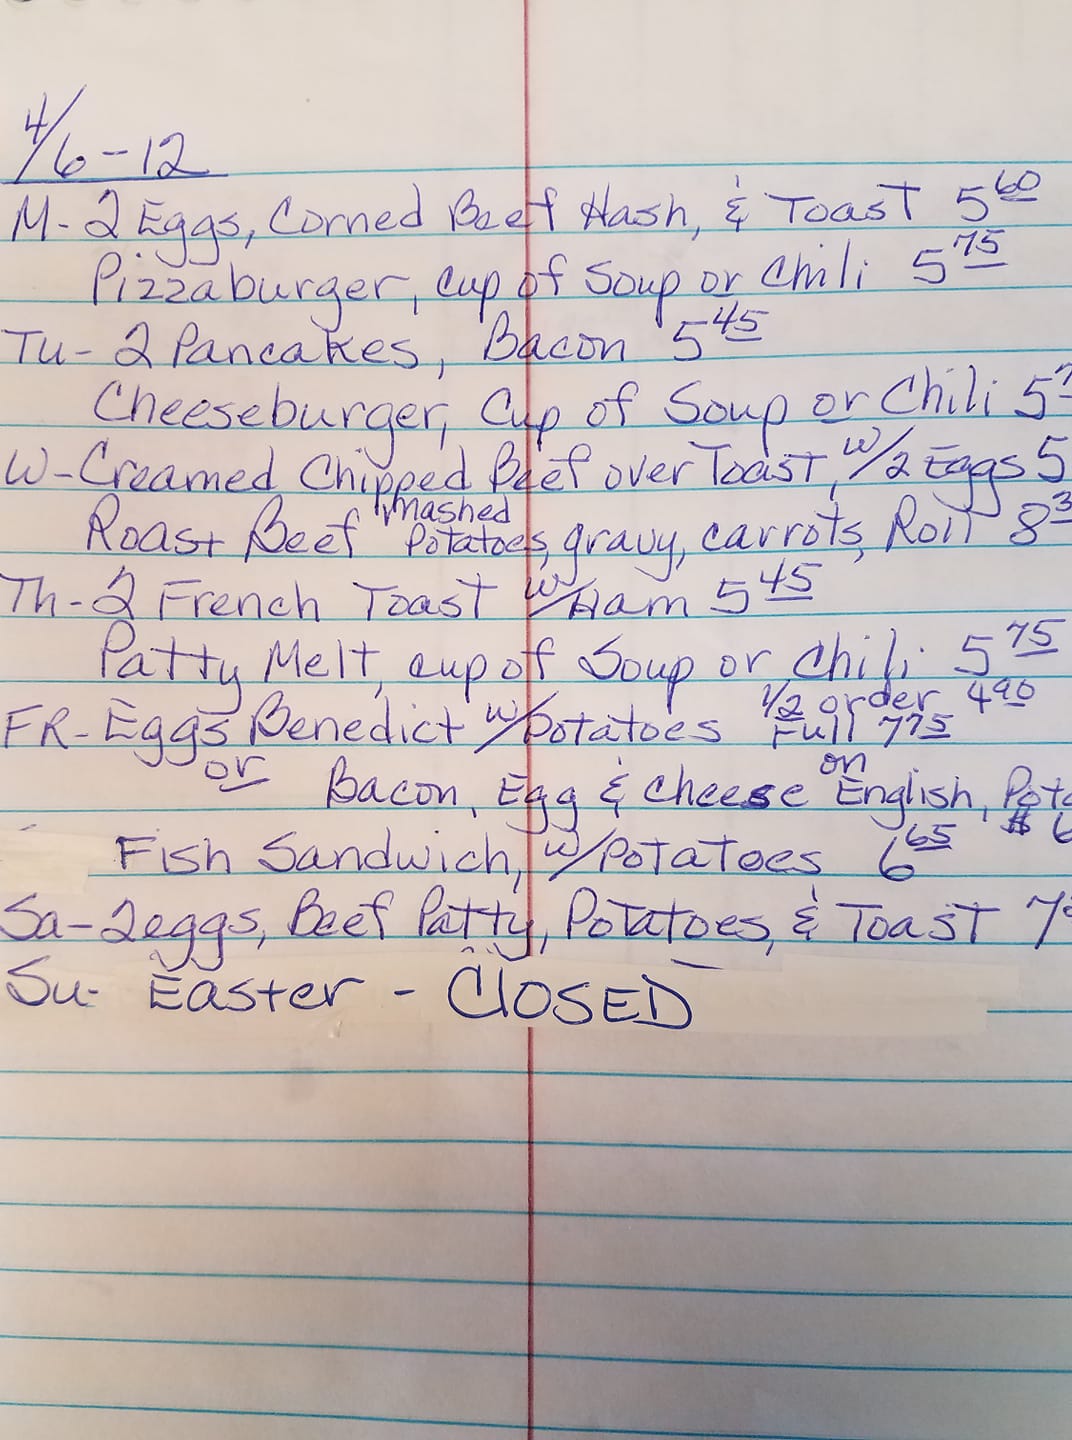 4/6-12
M- 2 Eggs, Corned Beef Hash, & Toast 5 60
Pizzaburger, cup of Soup or Chili 5 75
Tu- 2 Pancakes, Bacon 5 45
Cheeseburger, Cup of Soup or Chili 5
W- Creamed Chipped Beef over Toast, w/2 Eggs 5
Roast Beef Mashed Potatoes, gravy, carrots, Roll 8
Th- 2 French Toast w/Ham 5 45
Patty Melt, cup of Soup or Chili 5 75
FR- Eggs Benedict w/Potatoes 1/2 order 4 90
Full 7 75
or Bacon, Egg & Cheese on English,
$ 6
Fish Sandwich, w/Potatoes 6 65
Sa- 2 eggs, Beef Patty, Potatoes, & Toast 7
Su- Easter - CLOSED